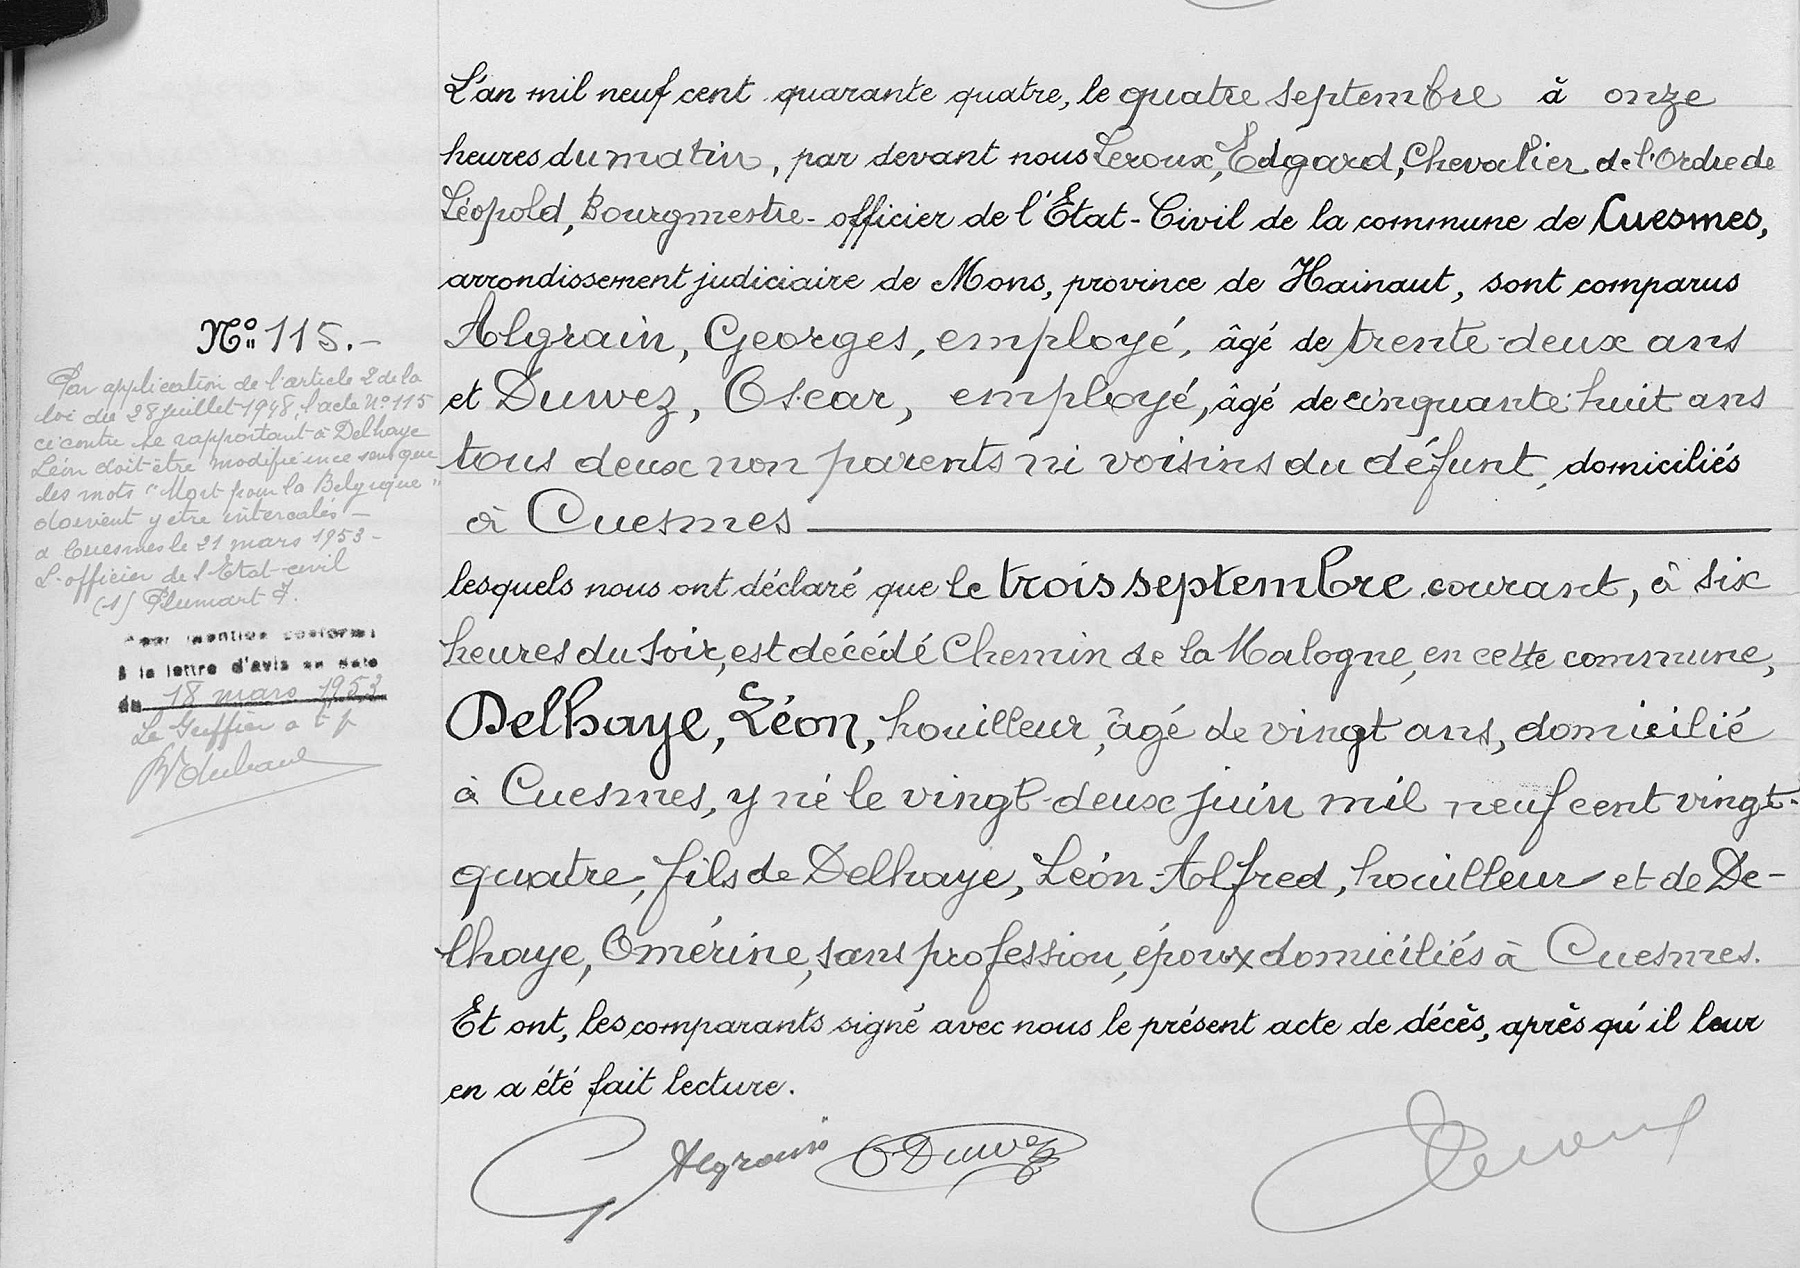 L'an mil neuf cent quarante quatre, le quatre septembre à onze
heures du matin, par devant nous Leroux, Edgard, Chevalier de l'Ordre de
Léopold, Bourgmestre - officier de l'État-Civil de la commune de Cuesmes,
arrondissement judiciaire de Mons, province de Hainaut, sont comparus
Algrain, Georges, employé, âgé de trente-deux ans
et Duwez, Oscar, employé, âgé de cinquante-huit ans
tous deux non parents ni voisins du défunt, domiciliés
à Cuesmes
lesquels nous ont déclaré que le trois septembre courant, à six
heures du soir, est décédé Chemin de la Malogne, en cette commune,
Delhaye, Léon, houilleur, âgé de vingt ans, domicilié
à Cuesmes, y né le vingt-deux juin mil neuf cent vingt-
quatre, fils de Delhaye, Léon-Alfred, houilleur et de De-
lhaye, Omérine, sans profession, époux domiciliés à Cuesmes.
Et ont, les comparants signé avec nous le présent acte de décès, après qu'il leur
en a été fait lecture.
G Algrain O Duwez Leroux
No 115.-
Par application de l'article 2 de la
loi du 28 juillet 1948, l'acte No 115
ci contre se rapportant à Delhaye
Léon doit être modifié en ce sens que
les mots "Mort pour la Belgique"
doivent y être intercalés -
à Cuesmes le 21 mars 1953 -
L'officier de l'Etat-civil
(s) Plumart F.
Pour mention conforme
à la lettre d'avis en date
du 18 mars 1953
Le Greffier